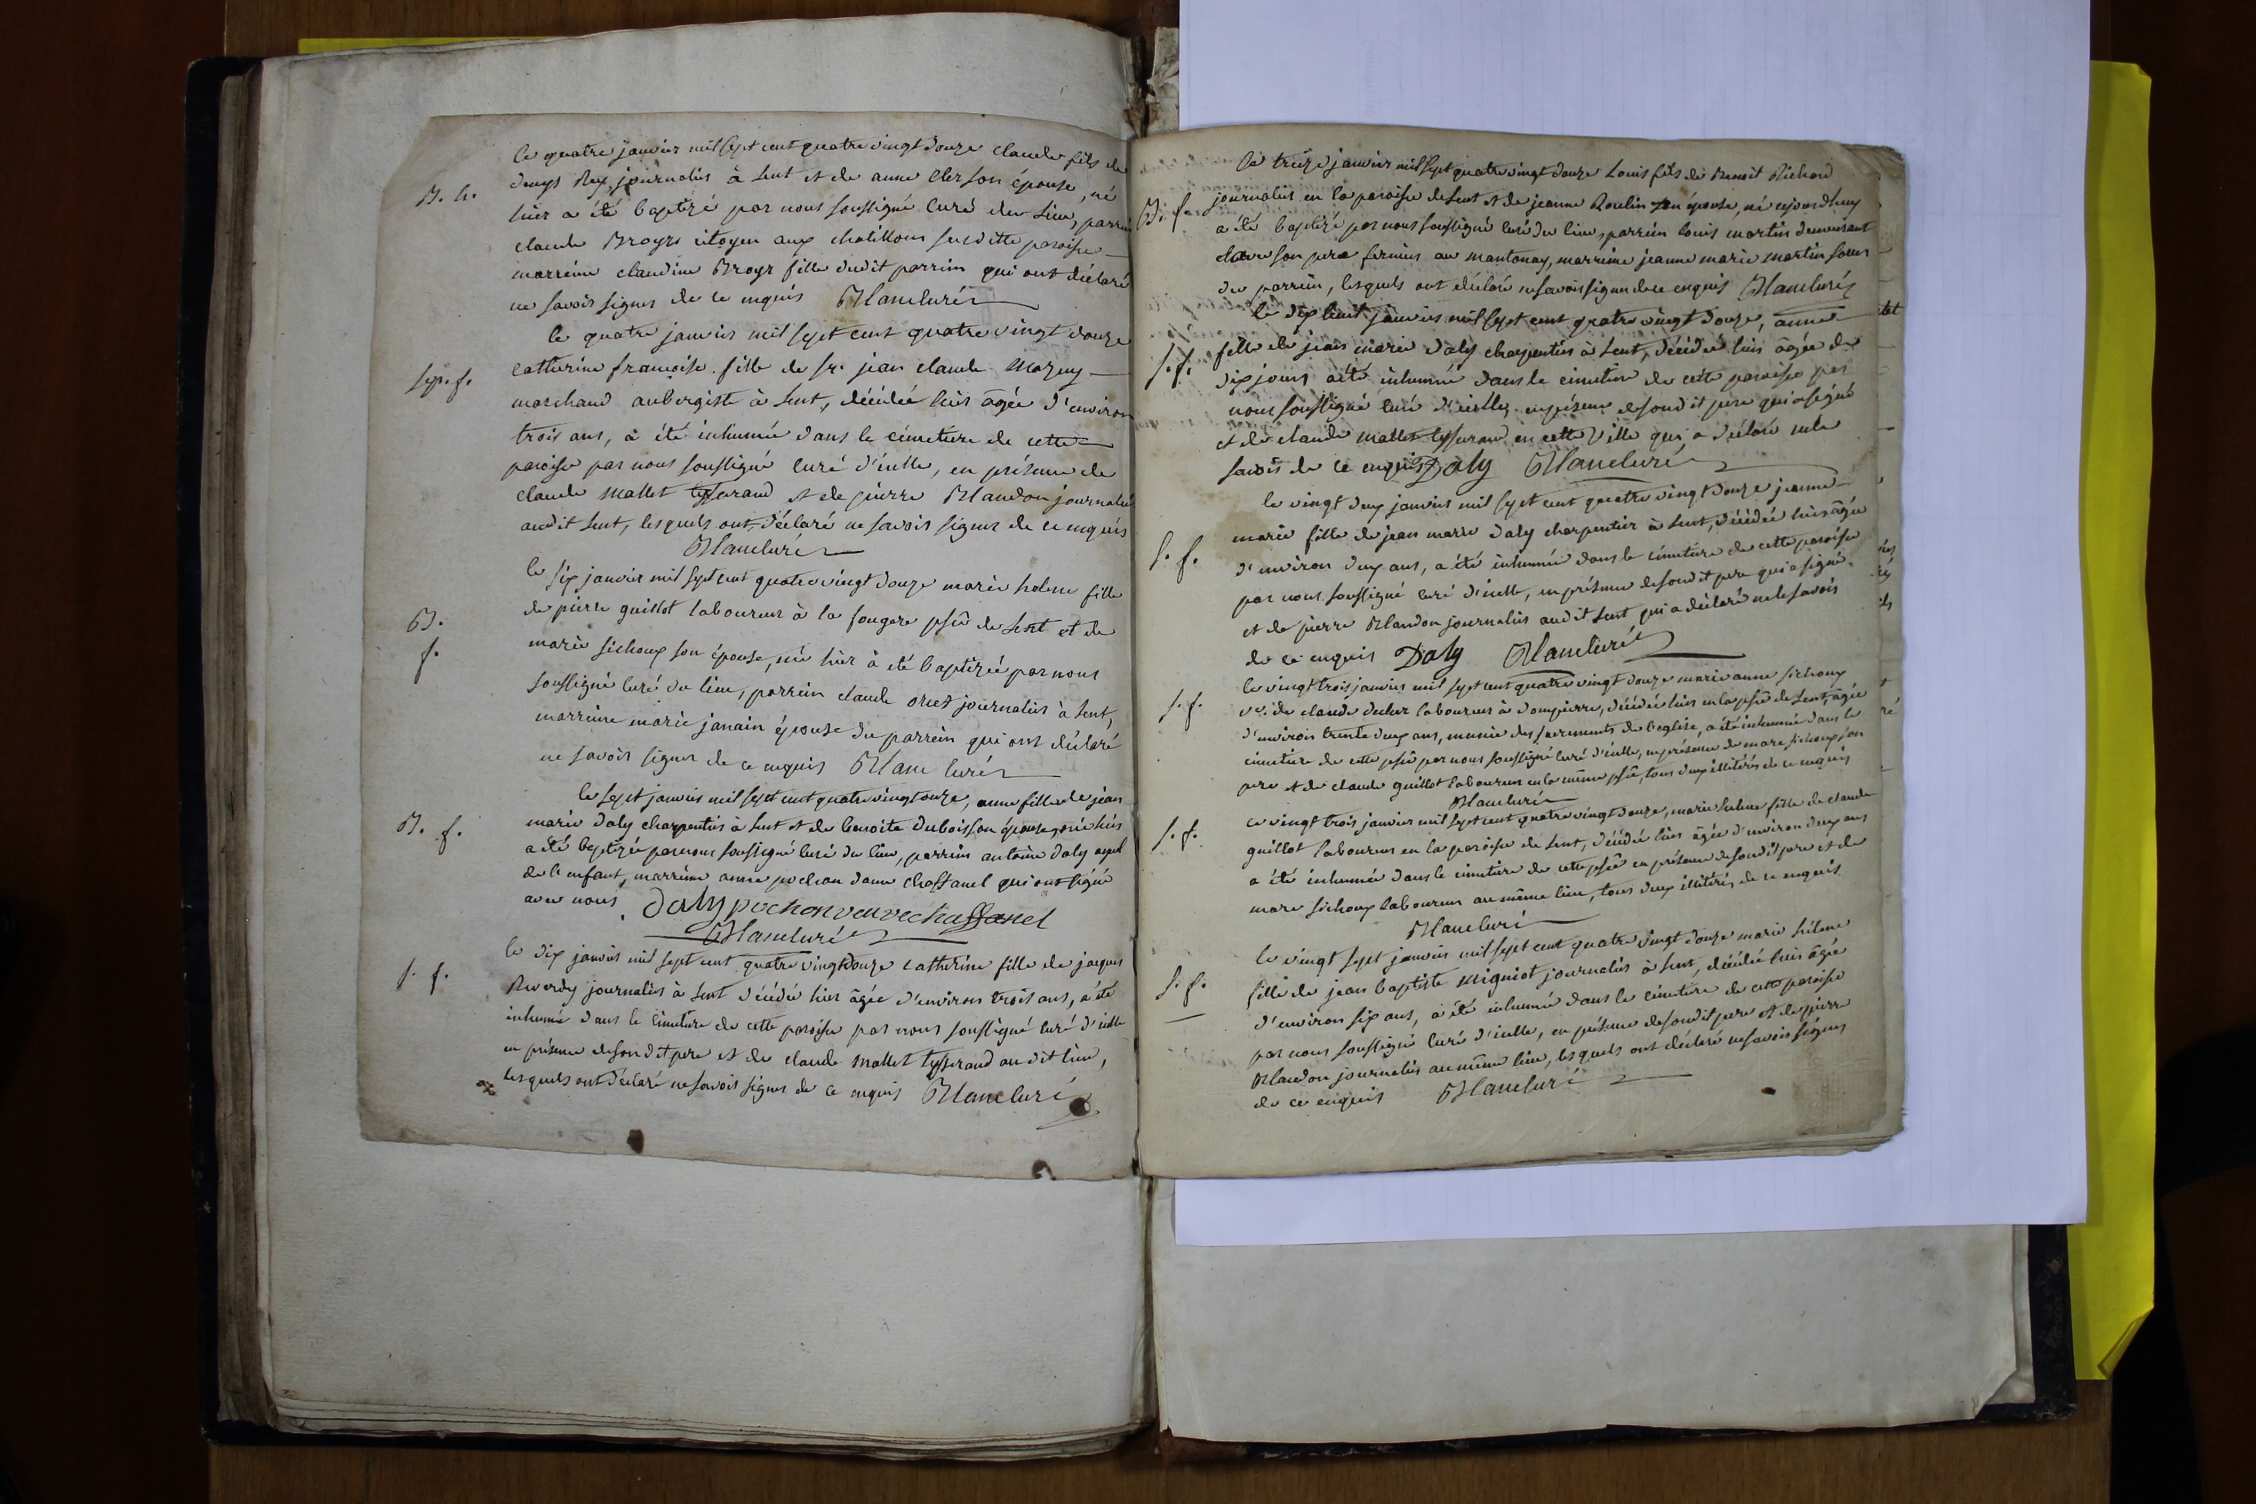 B. h.
Le quatre janvier mil sept cent quatre vingt douze claude fils de
denys Rey journalier à sent et de anne clerson épouse, né
hier a été baptizé par nous soussigné curé du lieu, parrein
claude Broyer citoyen aux chatillons susditte paroisse
marreine claudine Broyer fille dudit parrein qui ont déclaré
ne savoir signer de ce enquis Blanc curé
sep. f.
le quatre janvier mil sept cent quatre vingt douze
catherine francoise fille de sr. jean claude Mozuy
marchand aubergiste à sent, décédée hier âgée d'environ
trois ans, a été inhumée dans le cimetiere de cette
paroisse par nous soussigné curé d'icelle, en présence de
claude Mallet tysserand et de pierre Blandon journalier
audit sent, lesquels ont déclaré ne savoir signer de ce enquis
Blanc curé
B.
f.
le six janvier mil sept cent quatre vingt douze marie helene fille
de pierre guillot laboureur à la fougere psse de sent et de
marie sichoux son épouse, née hier a été baptizée par nous
soussigné curé du lieu, parrein claude orset journalier à sent,
marreine marie janain épouse du parrein qui ont déclaré
ne savoir signer de ce enquis Blanc curé
B. f.
le sept janvier mil sept cent quatre vingt douze, anne fille de jean
marie Daly charpentier à sent et de benoite dubois son épouse née hier
a été baptizée par nous soussigné curé du lieu, parrein antoine Daly ayeul
de l'enfant, marreine anne pochon dame chassanel qui ont signé
avec nous Daly pochon veuve chassanel
Blanc curé
s. f.
le dix janvier mil sept cent quatre vingt douze catherine fille de jacques
Reverdy journalier à sent décédée hier âgée d'environ trois ans, a été
inhumée dans le cimetiere de cette paroisse par nous soussigné curé d'icelle
en présence de son dit pere et de claude Mallet tysserand au dit lieu,
lesquels ont déclaré ne savoir signer de ce enquis Blanc curé
B. f.
Le treize janvier mil sept quatre vingt douze Louis fils de Benoit Richard
journalier en la paroisse de sent et de jeanne Roulin son épouse, né aujourd'huy
a été baptizé par nous soussigné curé du lieu, parrein louis martin demeurant
chez son pere fermier au mantonay, marreine jeanne marie martin soeur
du parrein, lesquels ont déclaré ne savoir signer de ce enquis Blanc curé
s. f.
le dix huit janvier mil sept cent quatre vingt douze, anne
fille de jean marie Daly charpentier à sent, décédée hier âgée de
dix jours a été inhumée dans le cimetiere de cette paroisse par
nous soussigné curé d'icelle, en présence de son dit pere qui a signé
et de claude mallet tysserand en cette ville qui a déclaré ne le
savoir de ce enquis Daly Blanc curé
s. f.
le vingt deux janvier mil sept cent quatre vingt douze jeanne
marie fille de jean marie Daly charpentier à sent, décédée hier âgée
d'environ deux ans, a été inhumée dans le cimetiere de cette paroisse
par nous soussigné curé d'icelle, en présence de son dit pere qui a signé
et de pierre Blandon journalier audit sent qui a déclaré ne le savoir
de ce enquis Daly Blanc curé
s. f.
le vingt trois janvier mil sept cent quatre vingt douze marie anne sichoux
vve. de claude laboureur à dompierre, décédée hier en la psse de sent, âgée
d'environ trente deux ans, munie des sacrements de l'eglise, a été inhumée dans le
cimetiere de cette psse par nous soussigné curé d'icelle, en présence de marc sichoux son
pere et de claude guillot laboureur en la même psse, tous deux illitérés de ce enquis
Blanc curé
s. f.
ce vingt trois janvier mil sept cent quatre vingt douze, marie helene fille de claude
guillot laboureur en la paroisse de sent, décédée hier âgée d'environ deux ans
a été inhumée dans le cimetiere de cette psse en présence de son dit pere et de
marc sichoux laboureur au même lieu, tous deux illitérés, de ce enquis
Blanc curé
s. f.
le vingt sept janvier mil sept cent quatre vingt douze marie helene
fille de jean baptiste Migniot journalier à sent, décédée hier âgée
d'environ six ans, a été inhumée dans le cimetiere de cette paroisse
par nous soussigné curé d'icelle, en présence de son dit pere et de pierre
Blandon journalier au même lieu, lesquels ont déclaré ne savoir signer
de ce enquis Blanc curé